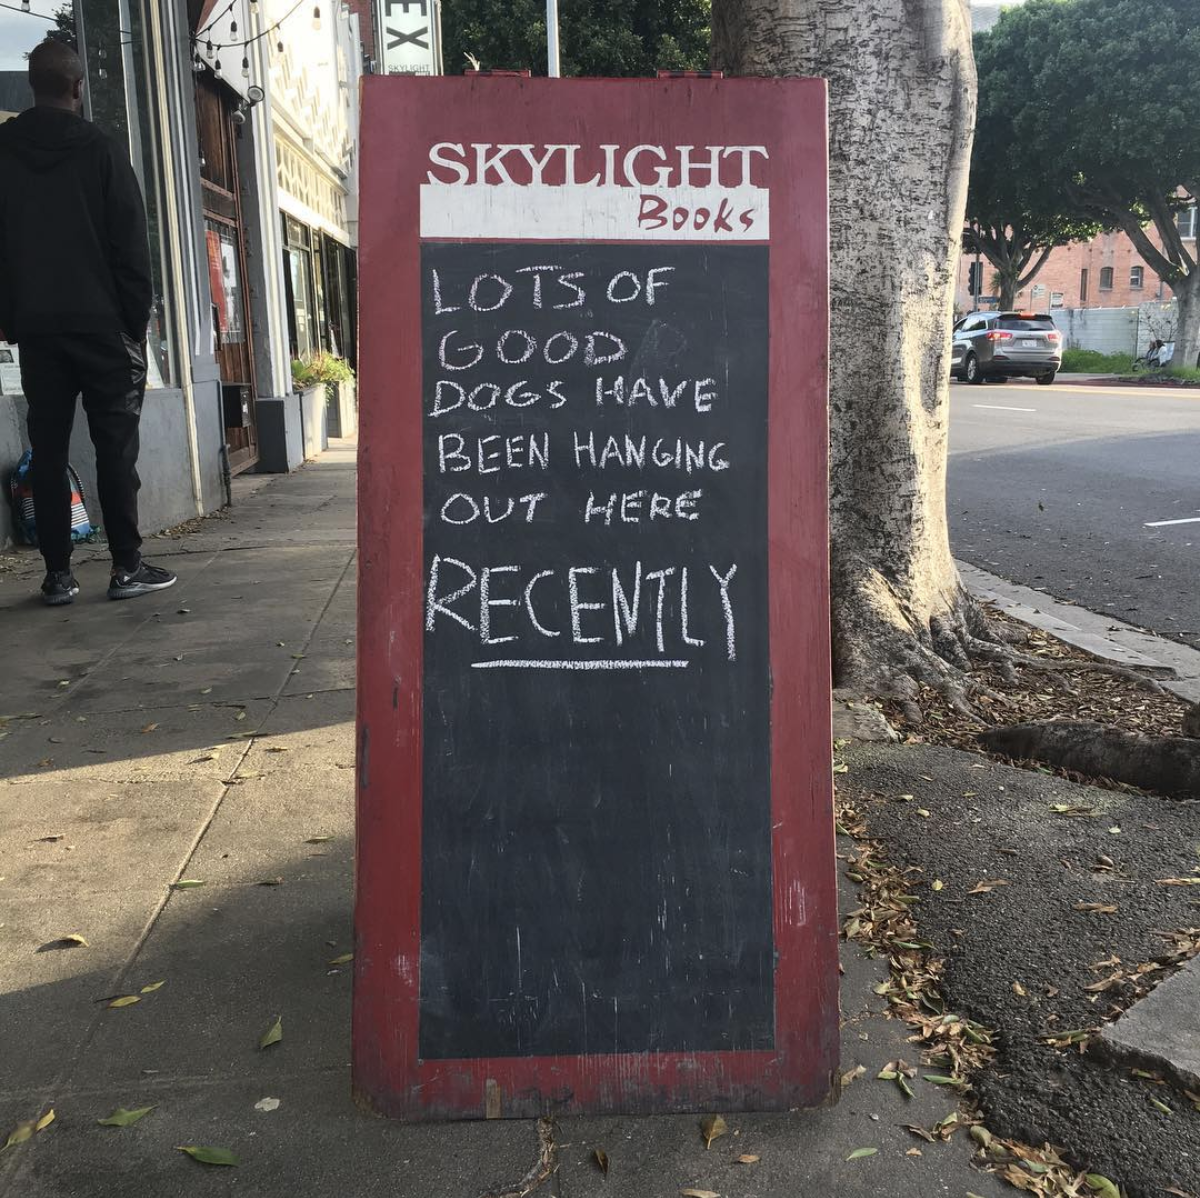 EX
SKYLIGHT
SKYLIGHT
Books
LOTS OF
GOOD
DOGS HAVE
BEEN HANGING
OUT HERE
RECENTLY